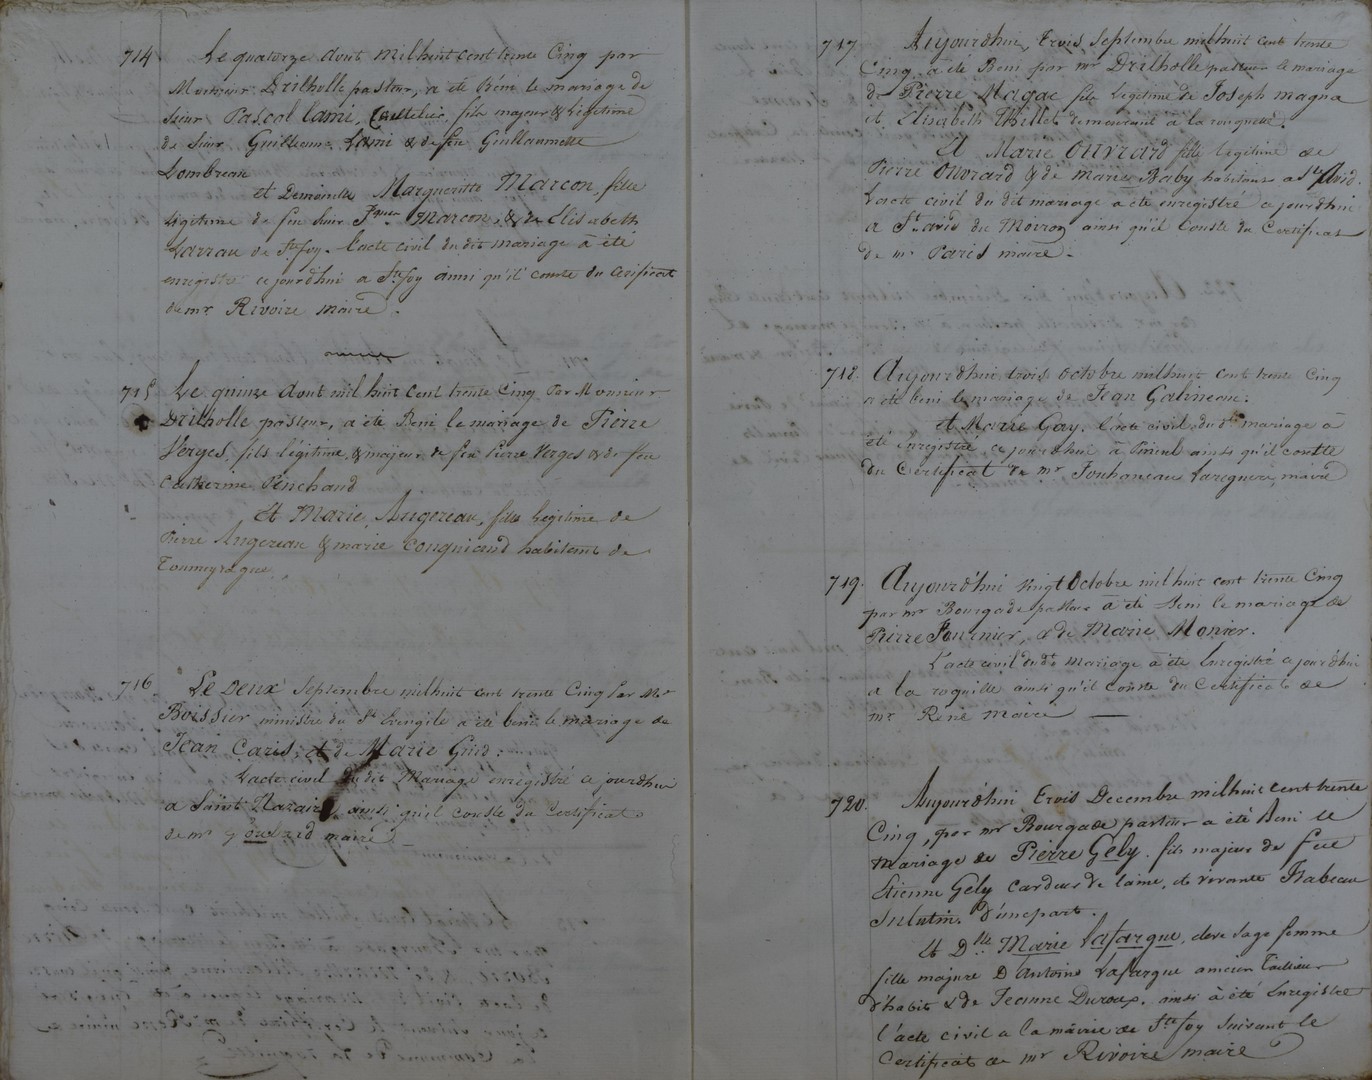 714
Le quatorze dout mil huit cent trente Cinq par
Monsieur Drilholle pasteur, a été Béni le mariage de
sieur Pascal Lami, fils majeur & Légitime
de Sieur Guillaume Lami & de feu Guillaumette
Lombreau
et Demoiselle Margueritte Marcon, fille
légitime de feu Sieur Marcon, & de Elisabeth
Larrau de Ste foy. Lacte civil du dit mariage à été
enregistré cejourdhui a Ste foy ainsi qu'il conste du Certificat
de mr Rivoire maire.
715
Le quinze dout mil huit Cent trente Cinq Par Monsieur
Drilholle pasteur, a été Beni le mariage de Pierre
Verges, fils légitime & majeur de feu Pierre Verges & de feu
Catherine Pinchaud
Et Marie Augereau, fille légitime de
Pierre Augereau & marie habitant de
716
Le Deux Septembre mil huit cent trente Cinq Par Mr
Boissier ministre du St Evengile a été beni le mariage de
Jean Caris et de Marie Guid.
Lacte civil du dit Mariage enregistré ce jourdhui
a Saint Nazaire ainsi qu'il conste du Certificat
de mr maire
717.
Aujourdhui, trois Septembre mil huit cent trente
Cinq, a été Beni par mr Drilholle pasteur le mariage
de Pierre Magac fils légitime de Joseph magna
et Elisabeth Millet demeurant à la
Et Marie Ouvrard fille légitime de
Pierre Ouvrard & de marie Baby habitans a St Avid.
Lacte civil du dit mariage a été enregistré ce jourdhui
a St avid du Moiron ainsi qu'il Conste du Certificat
de mr Paris maire.
718.
Aujourdhui trois Octobre mil huit cent trente Cinq
a été beni le mariage de Jean Galineau.
et Marie Gay. L'acte civil du dt mariage à
été enregistré ce jourdhui à ainsi qu'il conste
du Certificat de mr maire
719.
Aujourdhui vingt Octobre mil huit cent trente Cinq
par mr Bourgade pasteur à été Beni le mariage de
Pierre Fournier, & de Marie Monier.
L'acte civil du dt Mariage à été Enregistré ce jourdhui
a la roquille ainsi qu'il Conste du Certificat de
mr René maire
720.
Aujourdhui trois Decembre mil huit cent trente
Cinq, par mr Bourgade pasteur a été Beni le
Mariage de Pierre Gely. fils majeur de feu
Etienne Gely Cardeur de laine, et vivante Isabeau
d'une part.
Et Dlle Marie Lafargue, sage femme
fille majure D Antoine Lafargue ancien Tailleur
d'habit & de Jeanne Duroux, ainsi à été Enregistré
l'acte civil a la mairie de Ste foy Suivant le
Certificat de mr Rivoire maire